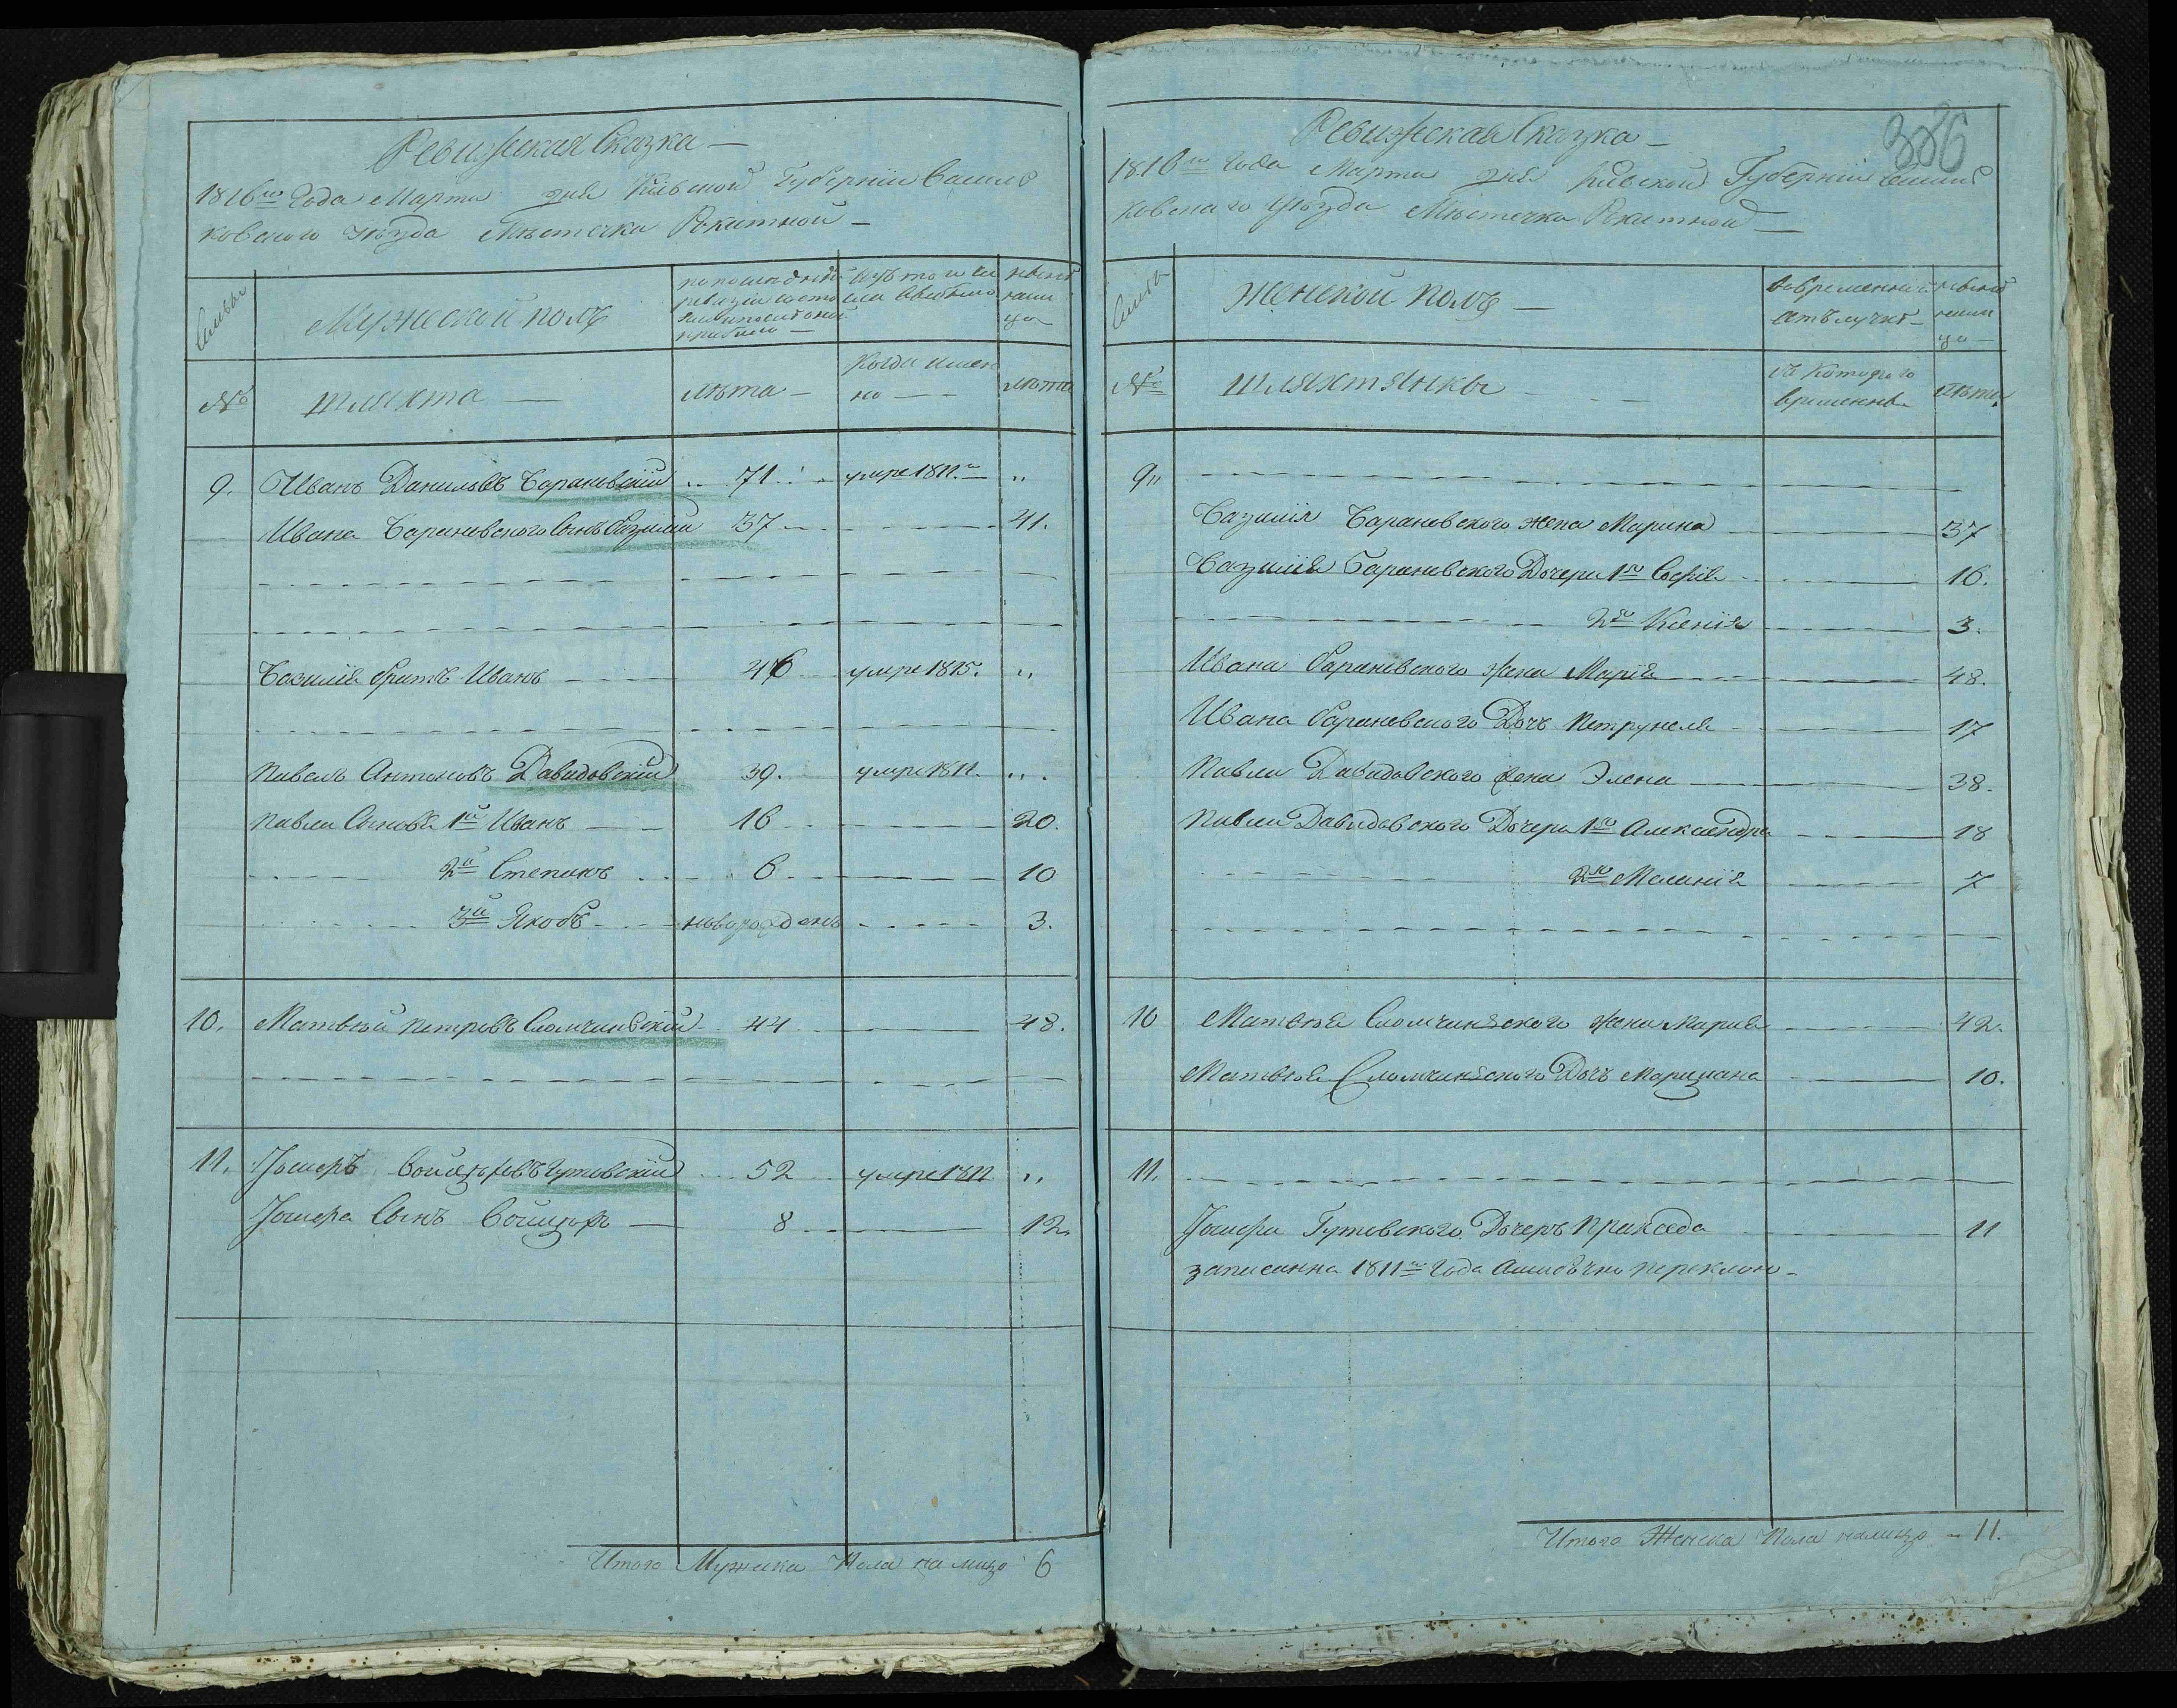 Ревижская Сказка —
1816го Года Марта дня Киевской Губернии Василь
ковского уезда Местечка Рокитной —
Семьи
Мужеской полъ
по последней
ревизии состо
яло и после оной
прибыло —
Изъ того чи
сла Выбыло
ныне на
лицо
№
шляхта —
лета —
Когда имен
но — —
лета
9. Иванъ Даниловъ Барановский 71 умре 1811го „
Ивана Барановского Сынъ Базилий 37 41.
Базилия братъ Иванъ 46 умре 1815. „
Павелъ Антоновъ Давидовский 39. умре 1811. „
Павла Сыновья 1й Иванъ 16 20.
2й Степанъ 6 10
3й Якобъ новорожденъ 3.
10. Матвей Петровъ Сломчинский 44 48.
11. Юзеръ Войцеховъ Гутовский 52 умре 1811 „
Юзефа Сынъ Войцехъ 8 12.
Итого Мужеска Пола на лицо 6
386
Ревижская Сказка —
1816го Года Марта дня Киевской Губернии Василь
ковского уезда Местечка Рокитной —
Семьи
Женской полъ —
во временной
отлучке —
ныне
налиц
цо —
№
шляхтянки
съ которого
времени
лета
9„
Базилия Барановского жена Марина 37
Базилия Барановского Дочери 1я София 16.
2я Ксения 3.
Ивана Барановского жена Мария 48.
Ивана Барановского Дочъ Петрунеля 17
Павла Давидовского жена Элена 38.
Павла Давидовского Дочери 1я Александра 18
2я Мелания 7
10 Матвея Сломчинского жена Мария 42.
Матвея Сломчинского Дочъ Марианна 10.
11.
Юзефа Гутовского Дочеръ Пракседа 11
записанна 1811го Года
Итого Женска Пола налицо — 11.